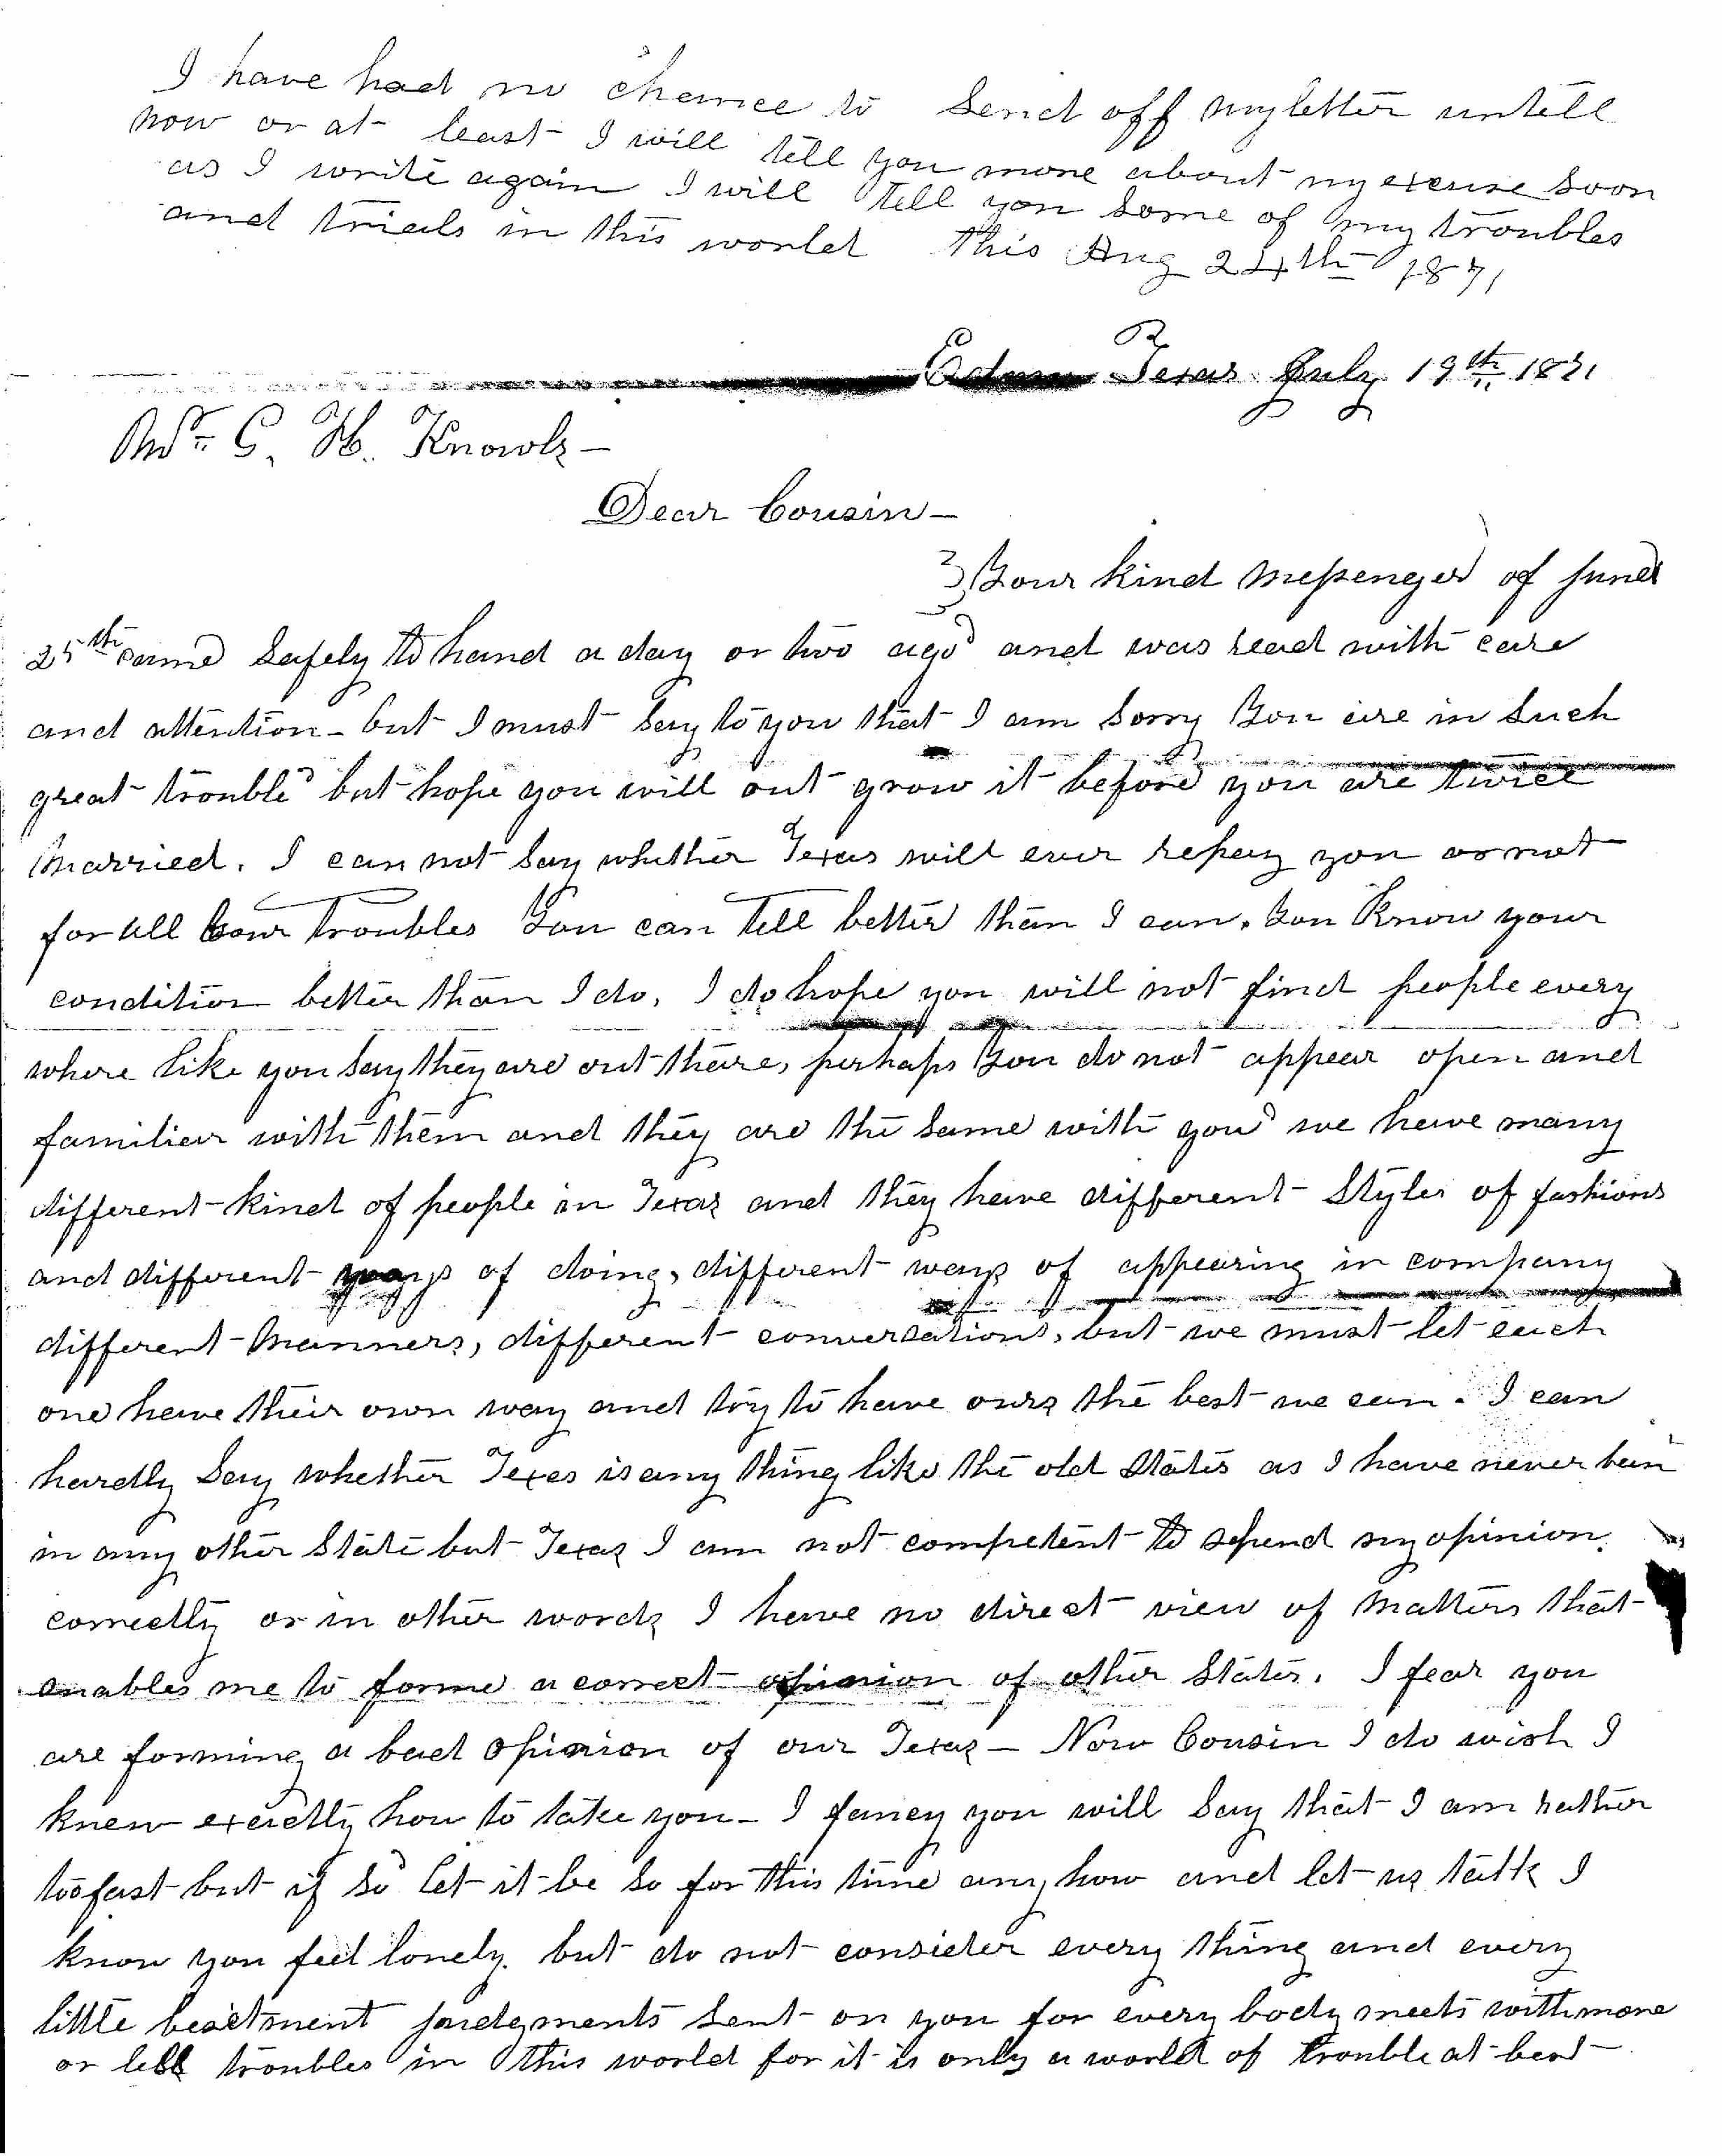 I have had no chance to send off my letter untill
now or at least I will tell you more about my excuse soon
as I write again I will tell you some of my troubles
and trials in this world this Aug 24th 1871
Texas July 19th 1871
Mr. G. H. Knowls –
Dear Cousin –
Your kind messenger of June
25th came safely to hand a day or two ago and was read with care
and attention – but I must say to you that I am sorry You are in such
great trouble but hope you will out grow it before you are twice
married. I can not say whether Texas will ever repay you or not
for all Your troubles You can tell better than I can. You Know your
condition better than I do, I do hope you will not find people every
where like you say they are out there, perhaps You do not appear open and
familiar with them and they are the same with you we have many
different kind of people in Texas and they have different styles of fashions
and different ways of doing, different ways of appearing in company
different manners, different conversations, but we must let each
one have their own way and try to have ours the best we can. I can
hardly say whether Texas is any thing like the old States as I have never been
in any other State but Texas I am not competent to my opinion.
correctly or in other words I have no direct view of matters that
enables me to forme a correct opinion of other States. I fear you
are forming a bad opinion of our Texas – Now Cousin I do wish I
knew exactly how to take you – I fancy you will say that I am rather
too fast but if so let it be so for this time any how and let us talk I
know you feel lonely. but do not consider every thing and every
little judgments sent on you for every body meets with more
or less troubles in this world for it is only a world of trouble at best –